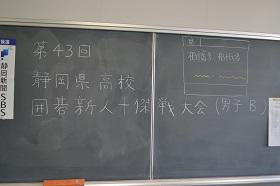 第43回
静岡県高校
囲碁新人十傑戦大会(男子B)
静岡新聞
SBS